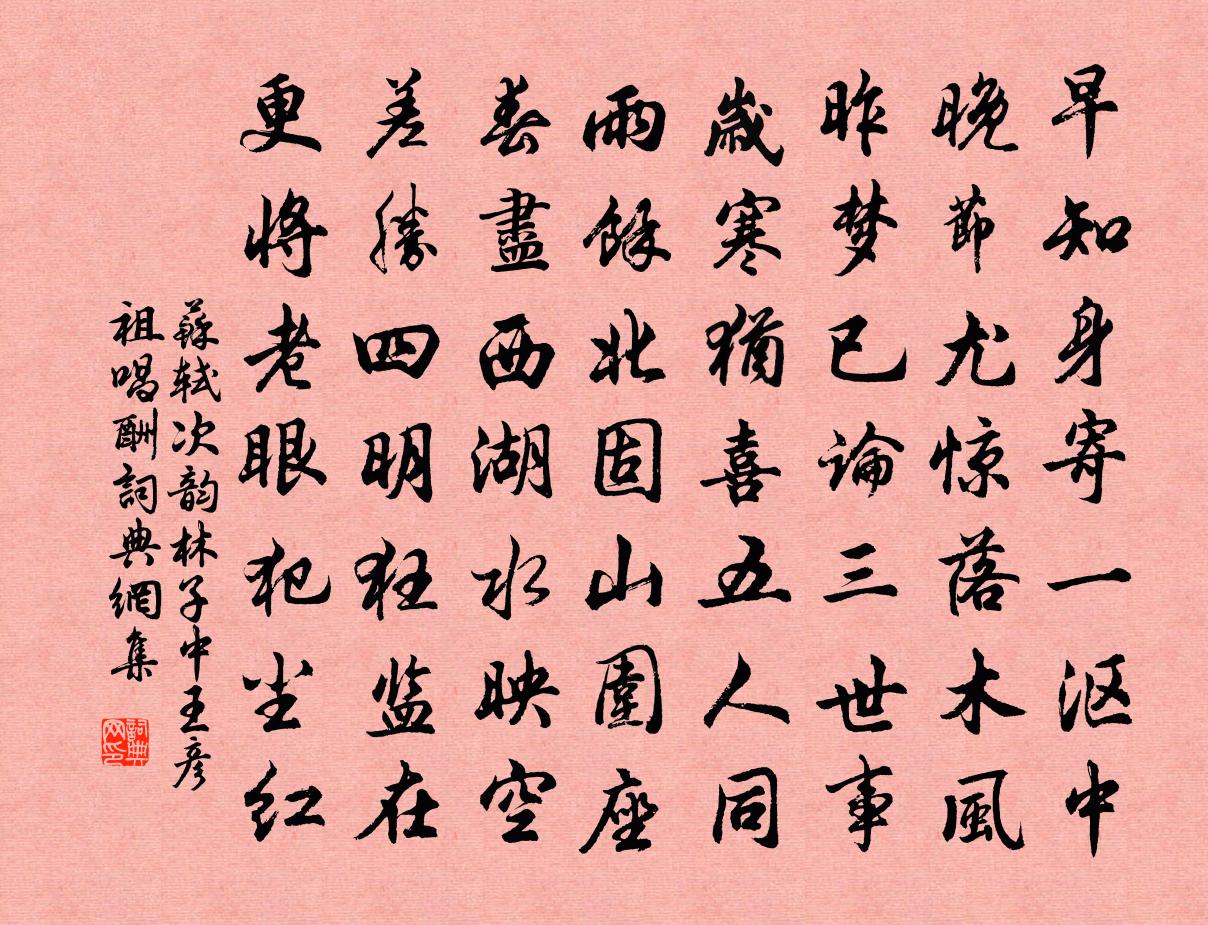 早知身寄一沤中
晚節尤惊落木風
昨梦已論三世事
歲寒猶喜五人同
雨餘北固山圍座
春盡西湖水映空
差勝四明狂监在
更将老眼犯尘红
蘇轼次韵林子中王彦
祖唱酬詞典網集
詞典网印